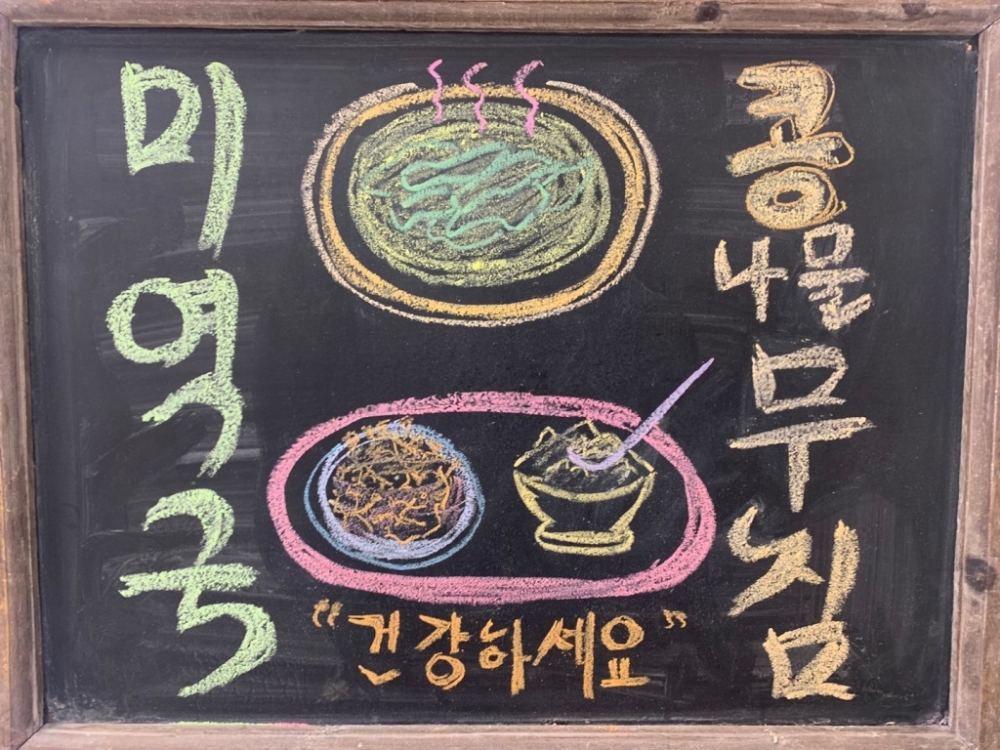 미역국
콩나물무침
"건강하세요"